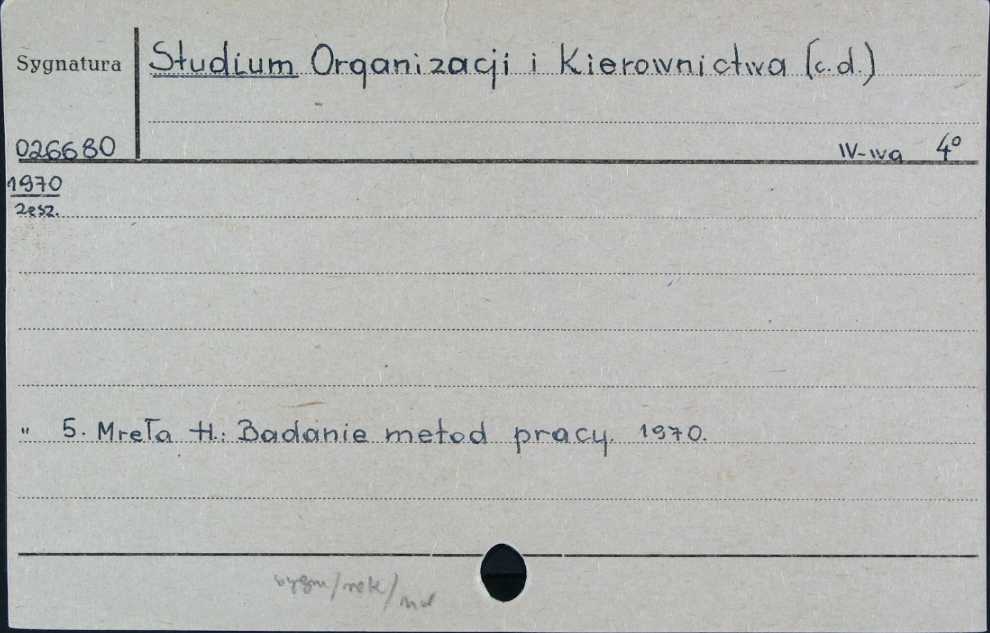 Sygnatura Studium Organizacji i Kierownictwa (c.d.)
026680 W-wa 4°
1970
zesz.
" 5. Mreła H.: Badanie metod pracy. 1970.
sygn/rek/